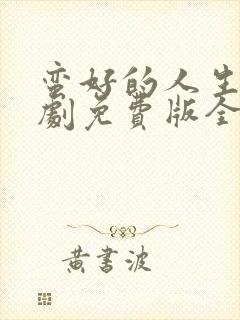 蛮好的人生
劇免費版全
黄書波